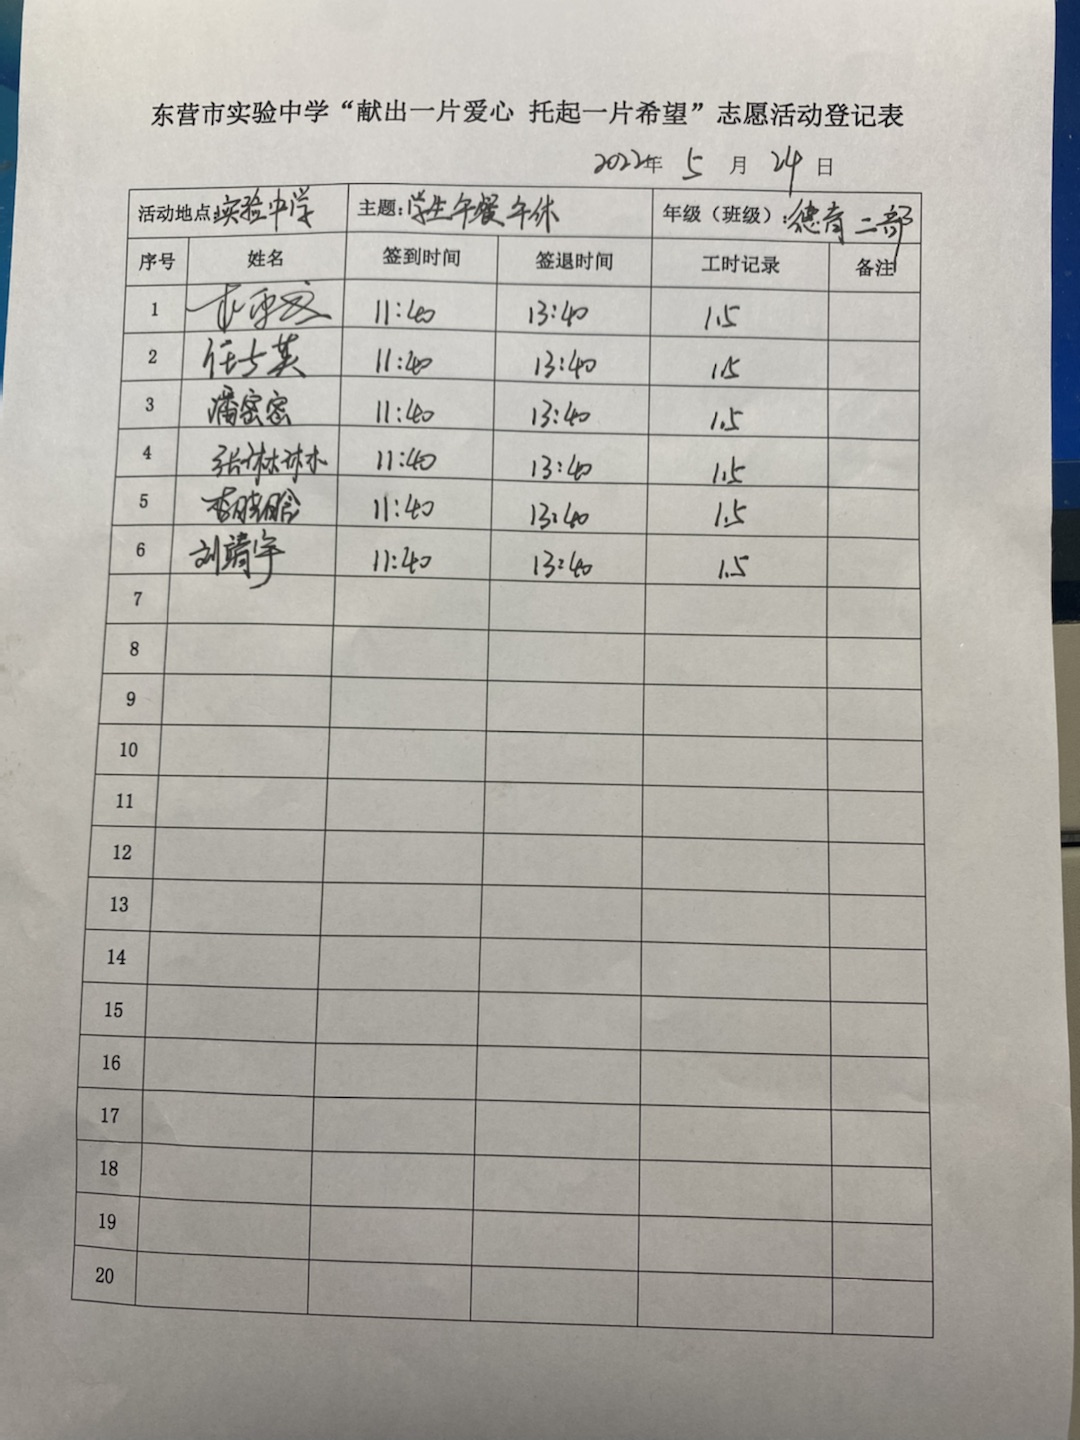 东营市实验中学“献出一片爱心 托起一片希望”志愿活动登记表
2022年 5 月 24 日
活动地点实验中学 主题:学生午餐午休 年级（班级）:德育二部
序号 姓名 签到时间 签退时间 工时记录 备注
1 11:40 13:40 1.5
2 任士英 11:40 13:40 1.5
3 潘密密 11:40 13:40 1.5
4 张琳琳 11:40 13:40 1.5
5 李晓晗 11:40 13:40 1.5
6 刘靖宇 11:40 13:40 1.5
7
8
9
10
11
12
13
14
15
16
17
18
19
20